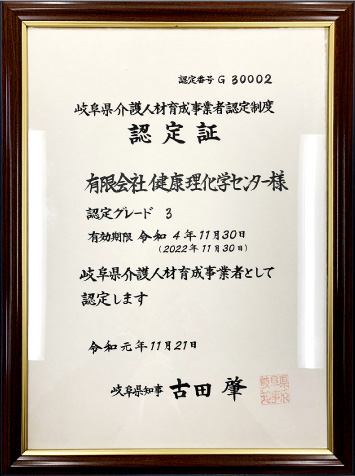 認定番号 G 30002
岐阜県介護人材育成事業者認定制度
認定証
有限会社 健康理化学センター様
認定グレード 3
有効期限 令和 4年11月30日
(2022年11月30日)
岐阜県介護人材育成事業者として
認定します
令和元年11月21日
岐阜県知事 古田 肇